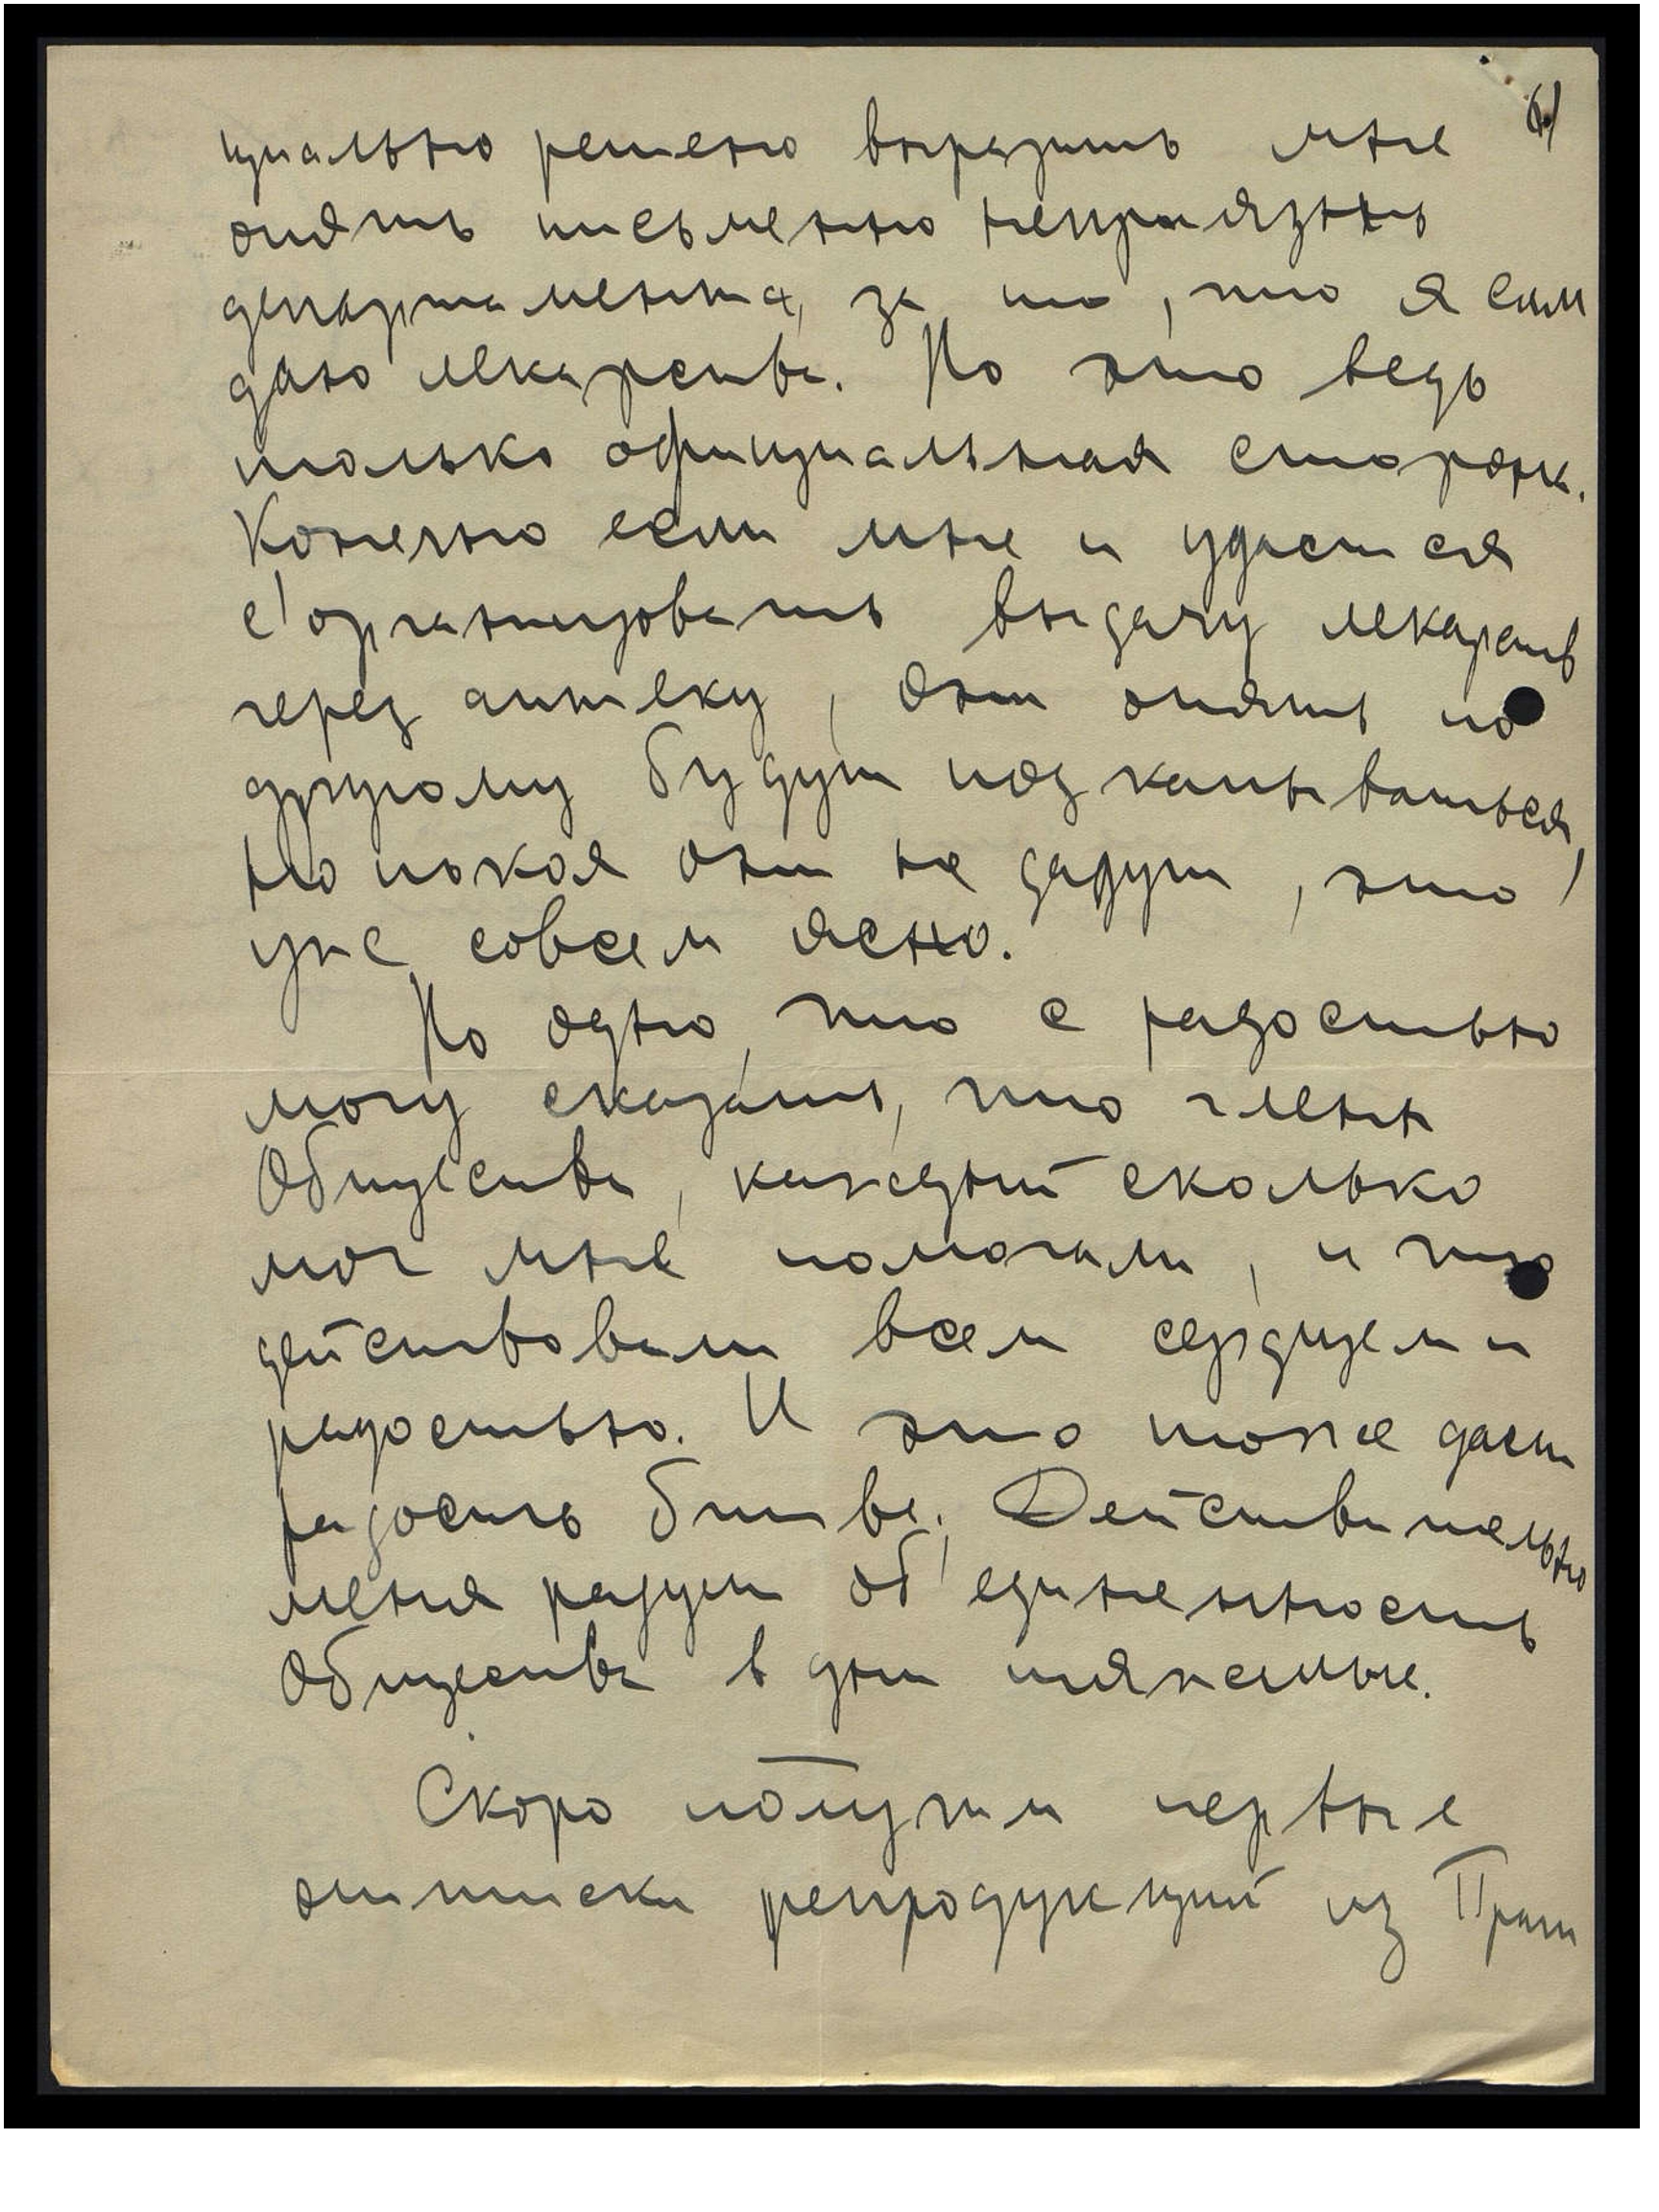 6)
циально решено выразить мне
опять письменно неприязнь
департамента, за то, что я сам
даю лекарства. Но это ведь
только официальная сторона.
Конечно если мне и удастся
с'организовать выдачу лекарств
через аптеку, они опять по
другому будут подкапываться,
но покоя они не дадут, это
уже совсем ясно.
Но одно, что с радостью
могу сказать, что члены
Общества, каждый сколько
мог мне помогали, и что
действовали всем сердцем и
радостью. И это тоже даст
радость битве. Действительно
меня радует об'единенность
Общества в дни тяжелые.
Скоро получим первые
оттиски репродукций из Праги